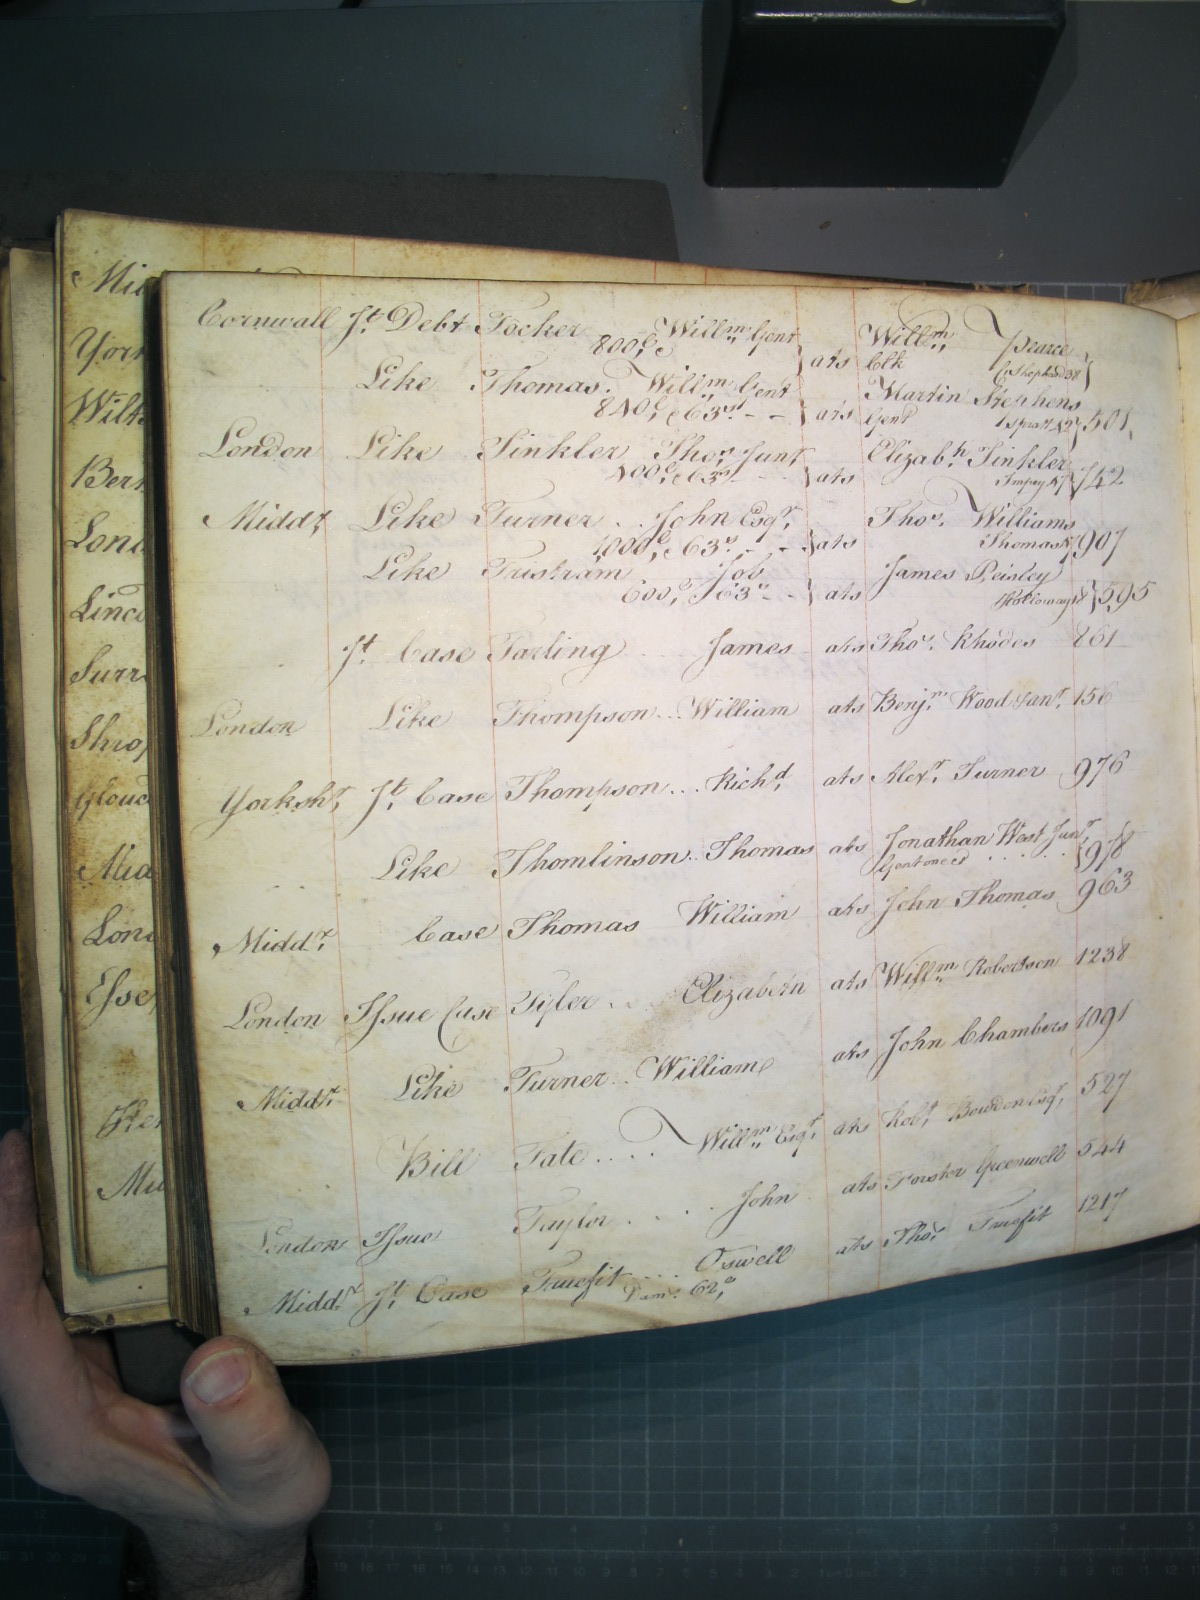 Cornwall Jt. Debt Tocker Willm. Gent ats Willm. Pearce
800£ Clk
Like Thomas. Willm. Gent ats Martin Stephens
840£ & 63s - - Gent 501
London Like Tinkler Thos. Junr ats Elizabh. Tinkler
400£ & 63s - - 742
Middx. Like Turner .. John Esqr. ats Thos. Williams
1,000£ & 63s. - - Thomas 907
Like Tristram Job ats James Peisley
600£ & 63s - - Holloway 595
Jt. Case Tarling James ats Thos. Rhodes 861
London Like Thompson... William ats Benjn. Wood Junr. 156
Yorkshr. Jt. Case Thompson... Richd. ats Alexr. Turner 976
Like Thomlinson.. Thomas ats Jonathan West Junr.
Gent one &c 978
Middx. Case Thomas William ats John Thomas 963
London Issue Case Tyler... Elizabeth ats Willm. Robertson 1238
Middx. Like Turner.. William ats John Chambers 1091
Bill Tate.... Willm. Esqr. ats Robt. Bowden Esqr. 527
London Issue Taylor.... John ats Forster Greenwell 544
Middx. Jt. Case Truefit.... Oswell ats Thos. Truefit 1217
Dam: 62
Mid
York
Wilts
Berk
Lond
Linco
Surr
Shrop
Glouc
Mid
Lond
Essex